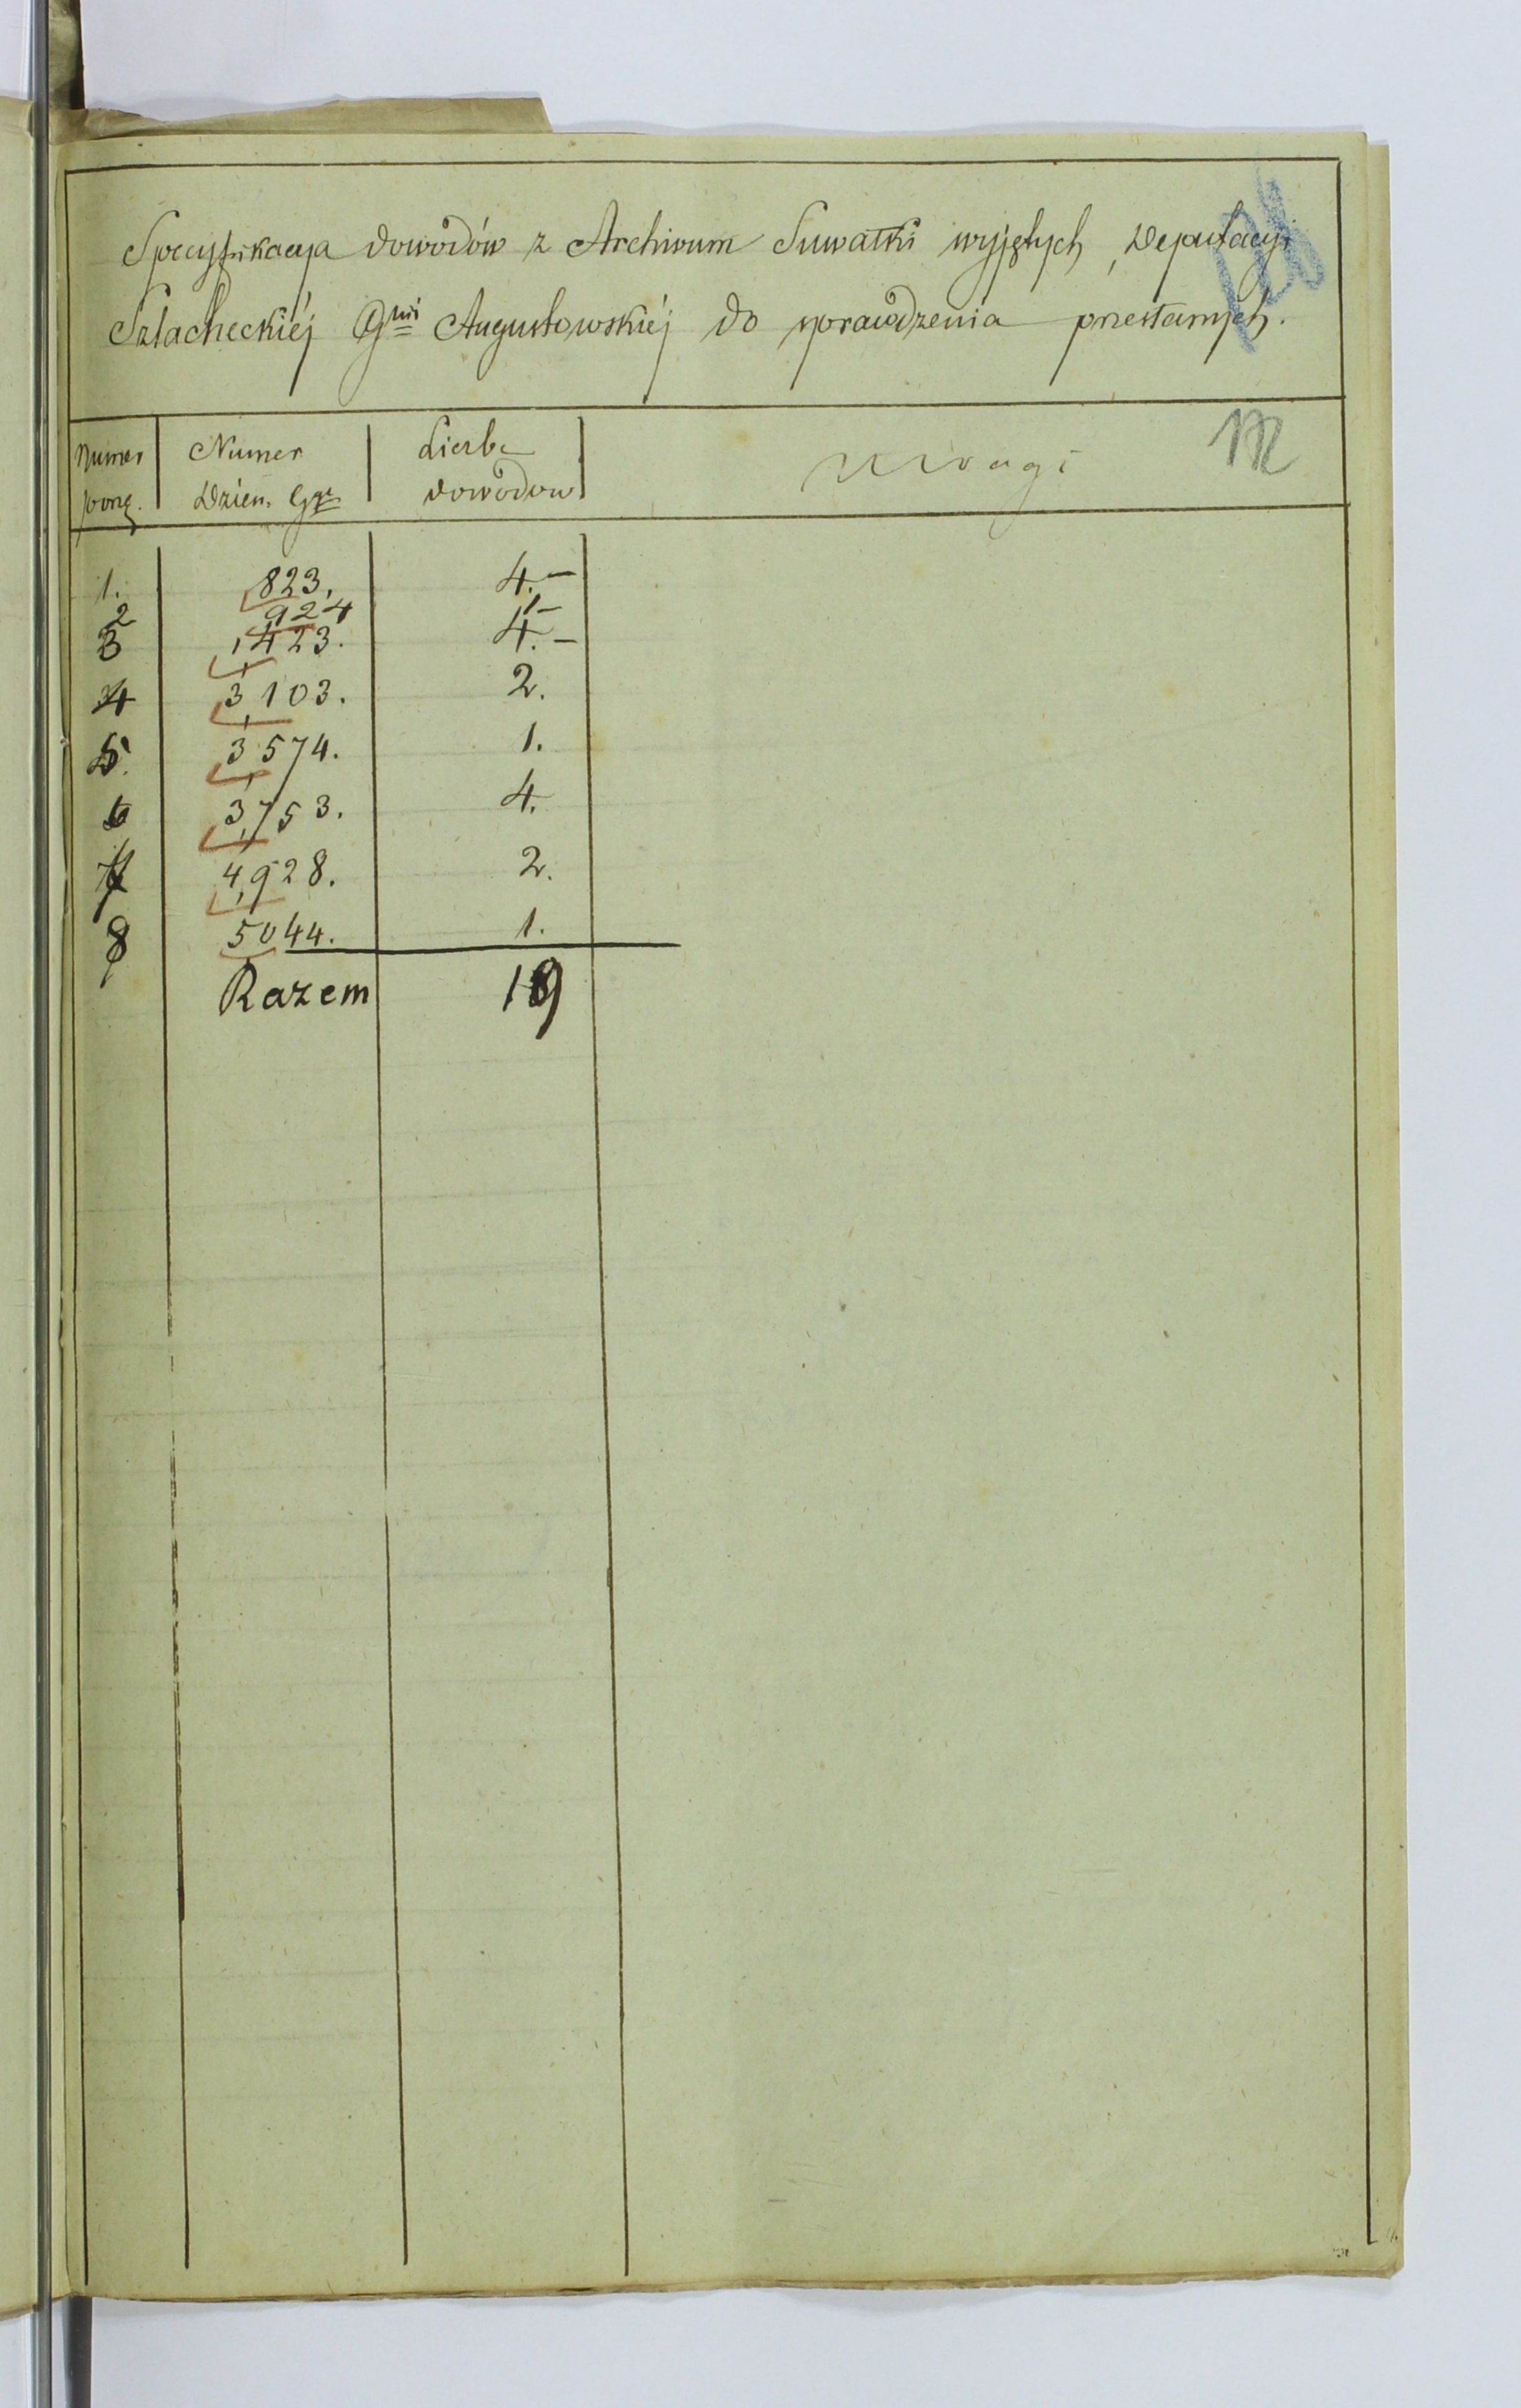 Specyfikacya dowodów z Archivum Suwałki wyjętych, Deputacyi
Szlacheckiéj Gnii Augustowskiéj do sprawdzenia przesłanych.
Numer porz. Numer Dzien. Liczba dowodow Uwagi
1. 823. 4.-
2 924 1-
3 1,423. 4.-
4 3,103. 2.
5. 3,574. 1.
6 3,753. 4.
7 4,928. 2.
8 5044. 1.
Razem 19